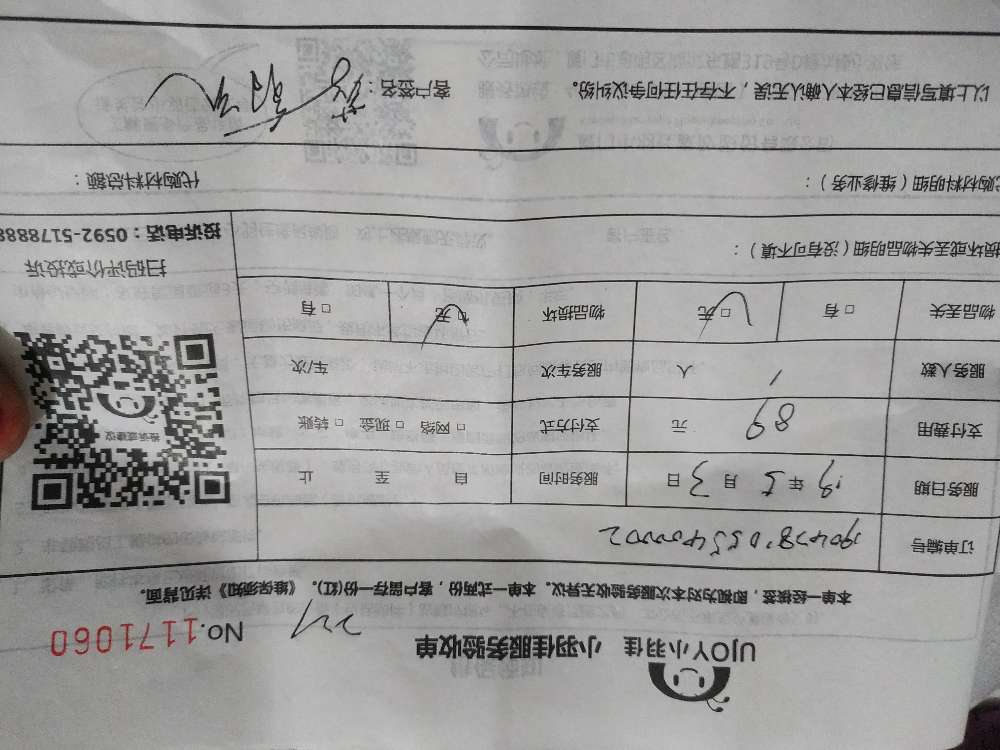 UJOY小羽佳 小羽佳服务验收单 No.1171060
本单一经核签，即视为对本次服务验收无异议。本单一式两份，客户留存一份(红)。《维保须知》详见背面。
订单编号
服务日期 19年5月3日 服务时间 自 至 止
支付费用 89 元 支付方式 □ 网络 □ 现金 □ 转账
服务人数 1 人 服务车次 车/次
物品丢失 □ 有 □ 无 物品损坏 □ 无 □ 有
投诉或建议
扫码评价或投诉
投诉电话：0592-5178888
损坏或丢失物品明细（没有可不填）：
代购材料明细（维修业务）： 代购材料总额：
以上填写信息已经本人确认无误，不存在任何争议纠纷。 客户签名：